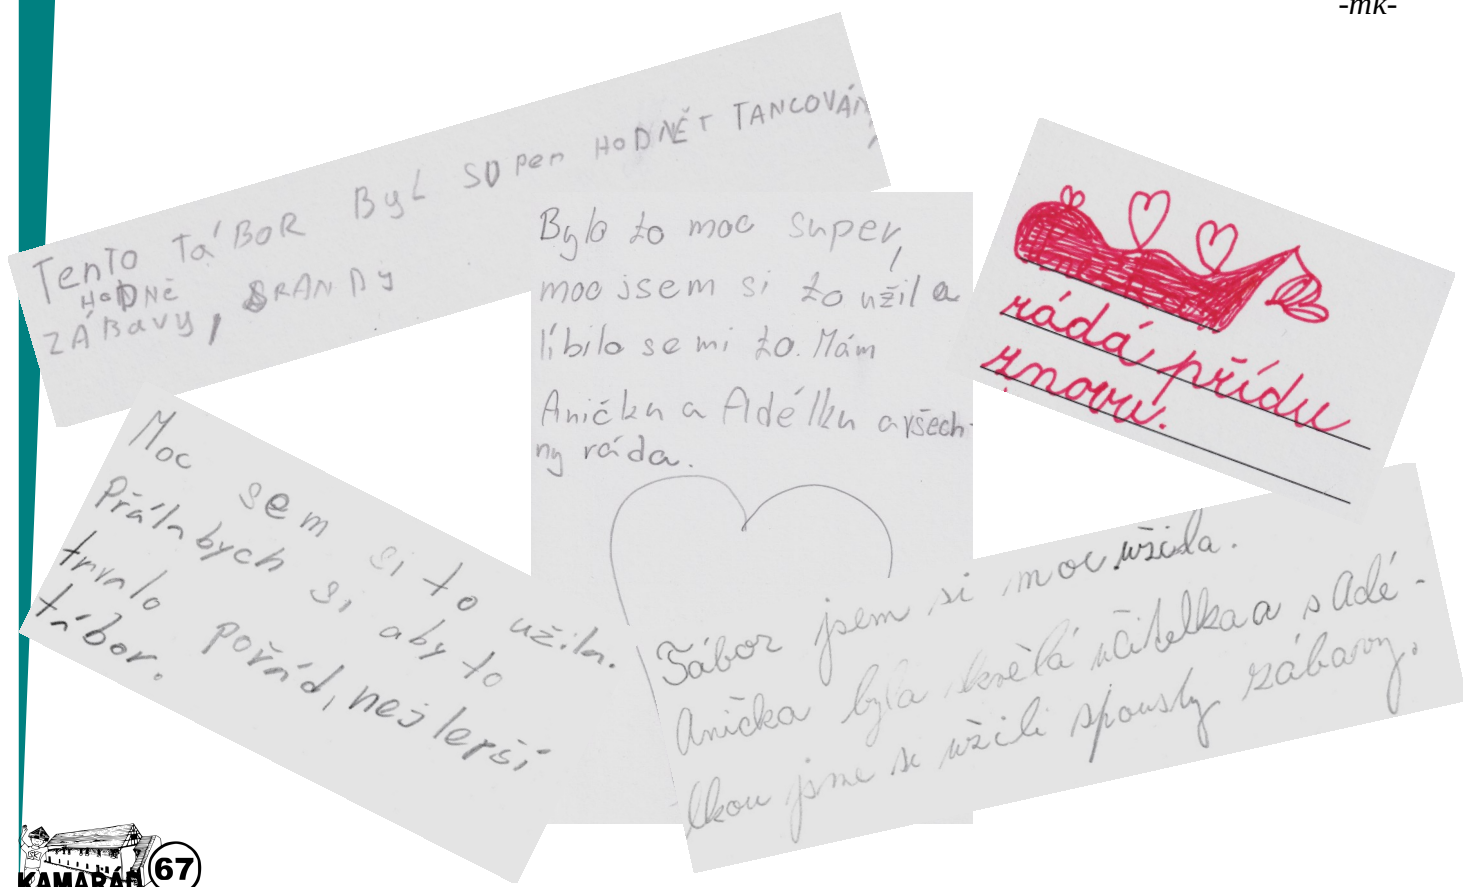 -mk-
TenTo TáBOR ByL SUPer HoDNĚT TANCOVÁN
HoDNĚ
ZÁBavy, SRANDY
Bylo to moc super,
moc jsem si to užil a
líbilo se mi to. Mám
Aničku a Adélku a všech-
ny ráda.
ráda přídu
znovu.
Moc sem si to užila.
Přála bych si aby to
trvalo pořád, nej lepší
tábor.
Tábor jsem si moc užila.
Anička byla skvělá učitelka a s Adé-
lkou jsme si užili spousty zábavy.
KAMARÁD
67